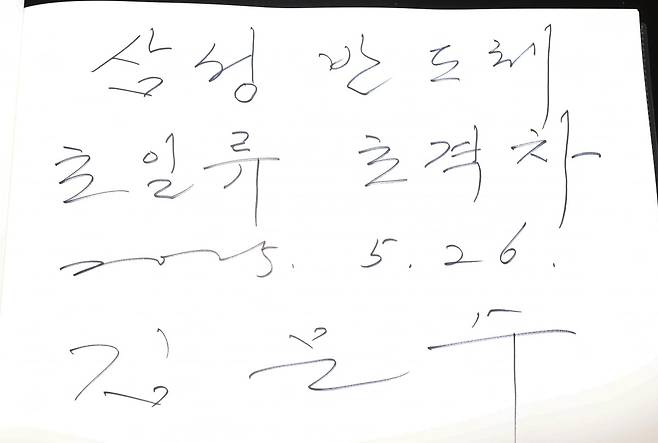 삼성 반도체
초일류 초격차
2025. 5. 26.
김문수